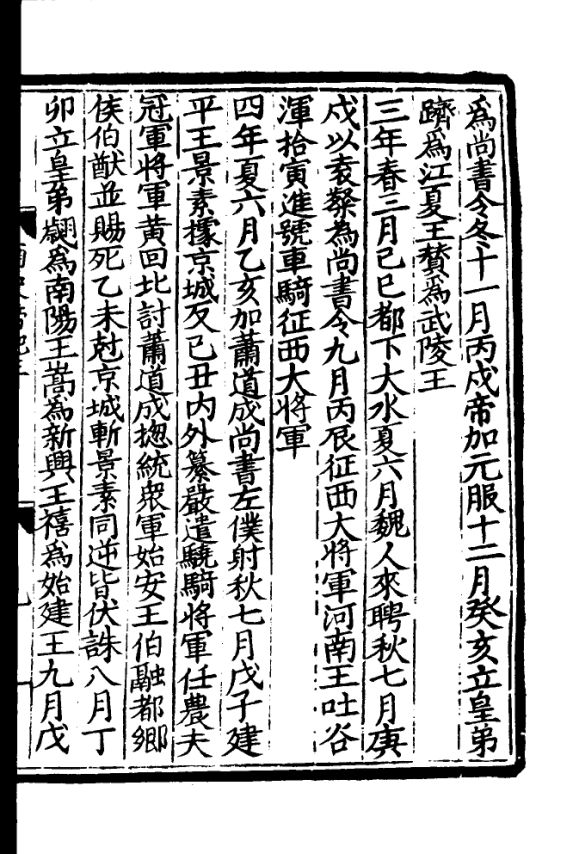 爲尚書令冬十一月丙戌帝加元服十二月癸亥立皇弟
躋爲江夏王贊爲武陵王
三年春三月己巳都下大水夏六月魏人來聘秋七月庚
戌以袁粲為尚書令九月丙辰征西大將軍河南王吐谷
渾拾寅進號車騎征西大將軍
四年夏六月乙亥加蕭道成尚書左僕射秋七月戊子建
平王景素據京城反己丑内外纂嚴遣驍騎將軍任農夫
冠軍將軍黃回北討蕭道成揔統衆軍始安王伯融都鄉
侯伯猷並賜死乙未尅京城斬景素同逆皆伏誅八月丁
卯立皇弟翽爲南陽王嵩為新興王禧爲始建王九月戊